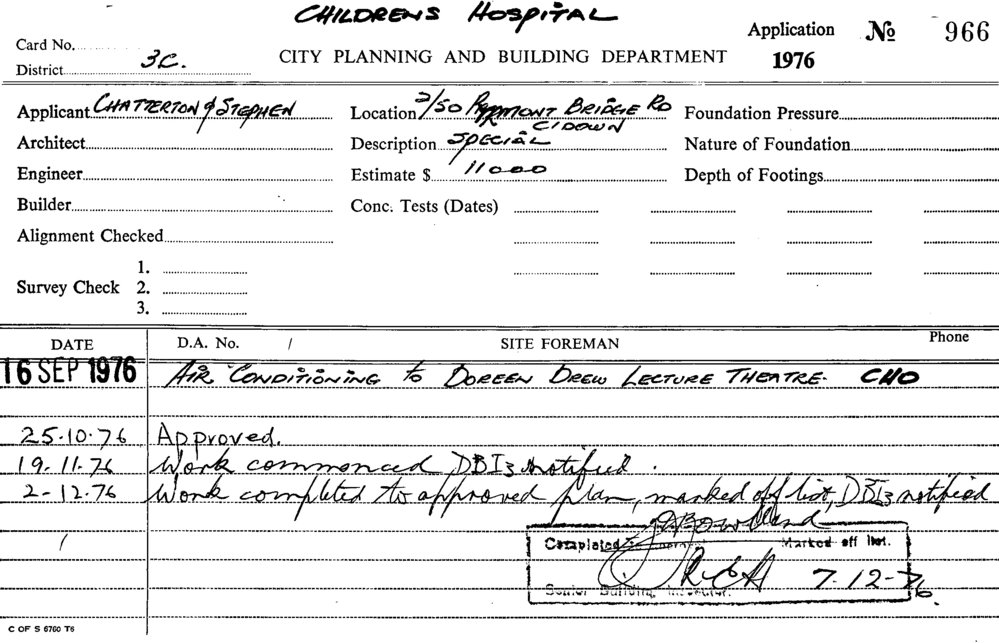 CHILDRENS HOSPITAL
Application No 966
Card No.
CITY PLANNING AND BUILDING DEPARTMENT
1976
District 3C.
Applicant CHATTERTON & STEPHEN
Location 2/50 PYRMONT BRIDGE RD
C/DOWN
Foundation Pressure
Architect
Description SPECIAL
Nature of Foundation
Engineer
Estimate $ 11000
Depth of Footings
Builder
Conc. Tests (Dates)
Alignment Checked
Survey Check 1.
2.
3.
DATE D.A. No. / SITE FOREMAN Phone
16 SEP 1976 AIR CONDITIONING to DOREEN DREW LECTURE THEATRE. CHO
25.10.76 Approved.
19.11.76 Work commenced, DBI3 notified.
2-12.76 Work completed to approved plan, marked off list, DBI3 notified
Completed Marked off list.
7-12-76.
Senior Building Inspector.
C OF S 6760 T6